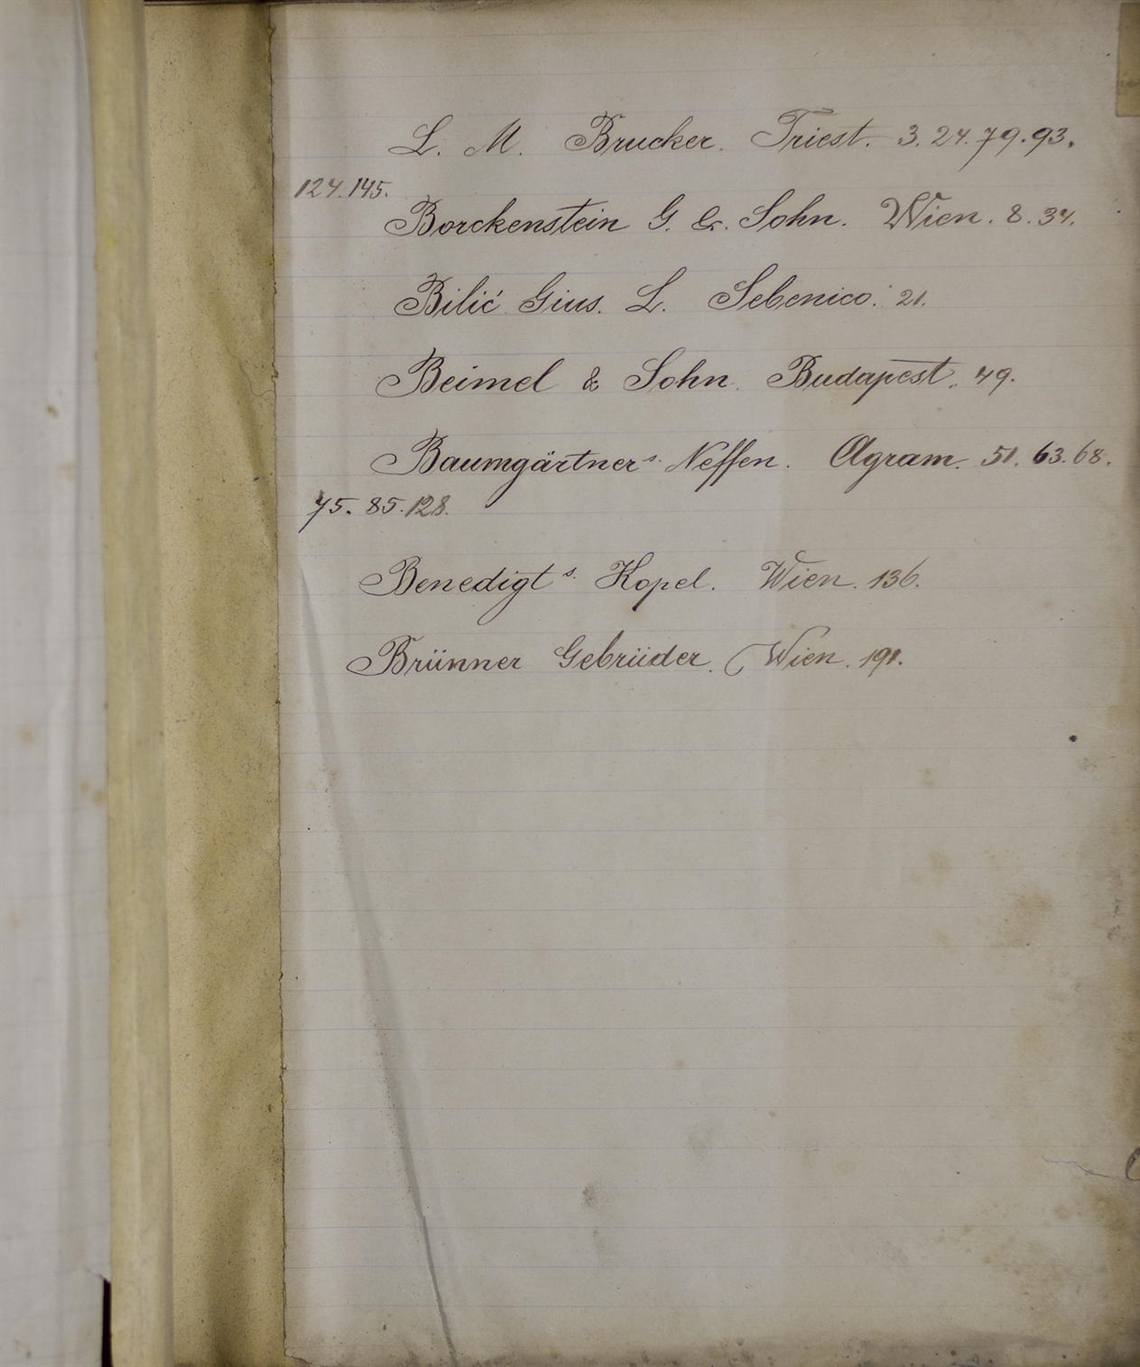 L. M. Brucker. Triest. 3. 24. 79. 93.
124. 145.
Borckenstein G. & Sohn. Wien. 8. 34.
Bilić Gius. L. Sebenico. 21.
Beimel & Sohn. Budapest. 49.
Baumgärtner s. Neffen. Agram. 51. 63. 68.
75. 85. 128.
Benedigt s. Kopel. Wien. 136.
Brünner Gebrüder. Wien. 191.